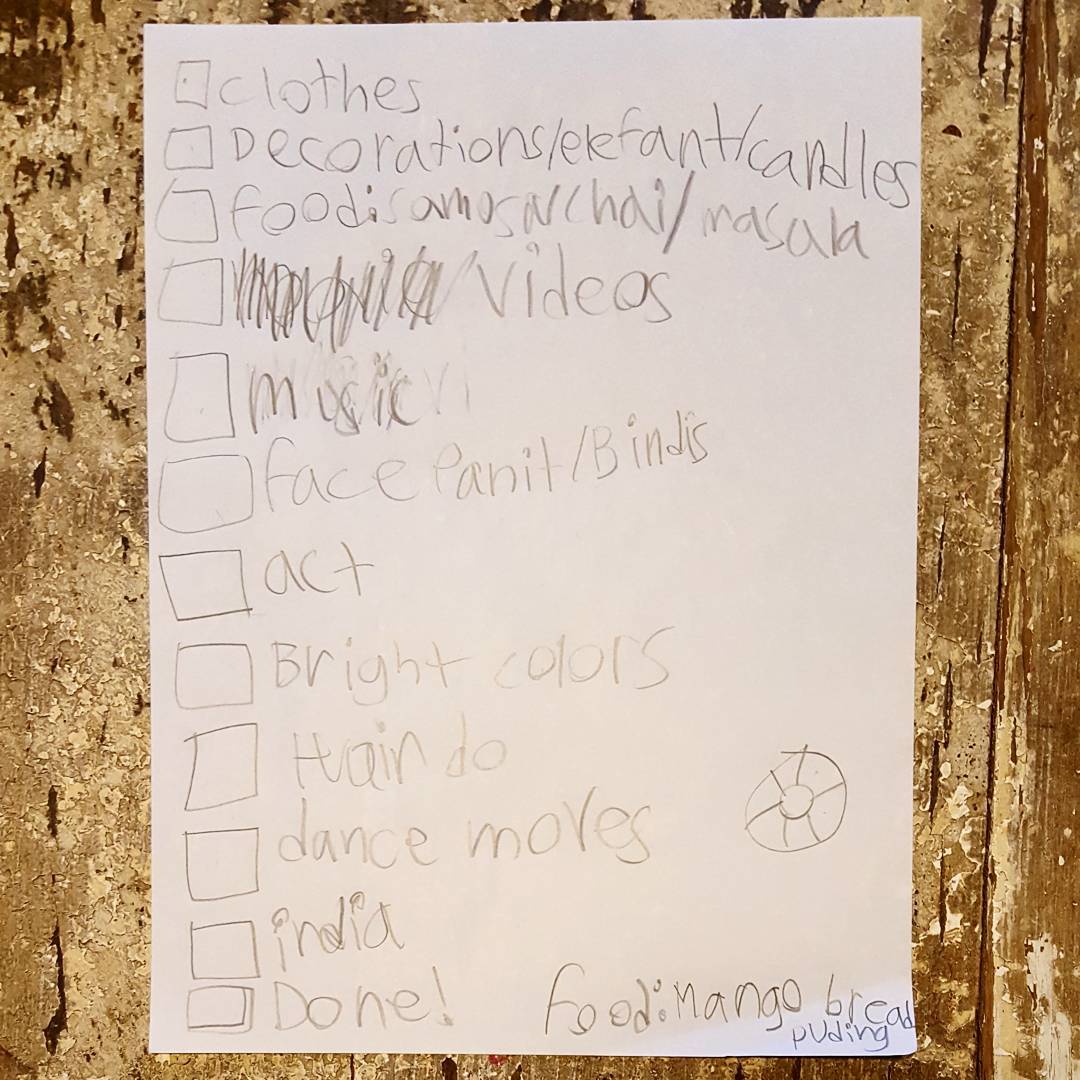 clothes
Decorations/elefant/candles
food:samosa/chai/masala
/videos
music
face Panit/Bindis
act
Bright colors
Hair do
dance moves
india
Done!
food: Mango bread
puding